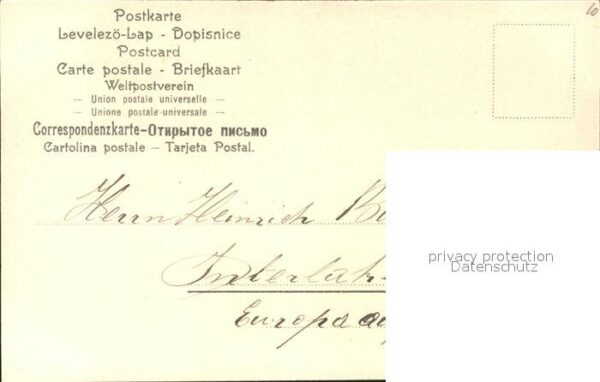 Postkarte
Levelező-Lap - Dopisnice
Postcard
Carte postale - Briefkaart
Weltpostverein
— Union postale universelle —
— Unione postale universale —
Correspondenzkarte-Открытое письмо
Cartolina postale — Tarjeta Postal.
10
Herrn Heinrich
Interlak
Europa
privacy protection
Datenschutz